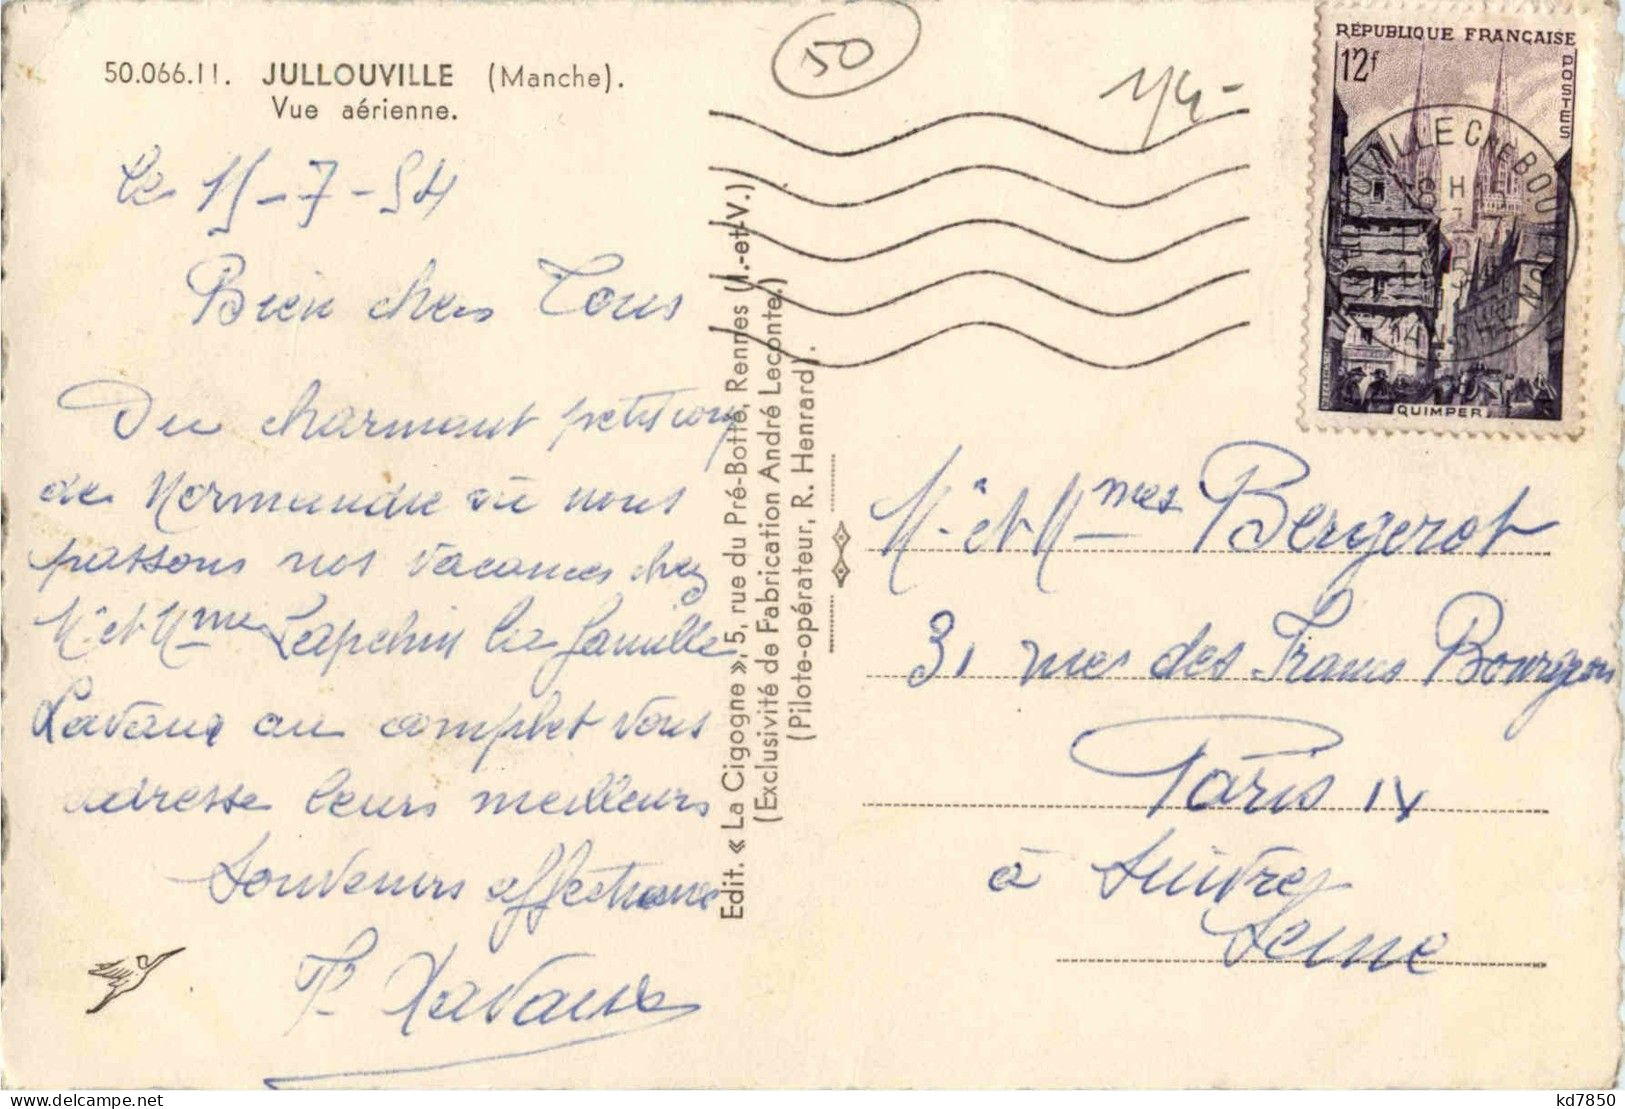 50.066.11. JULLOUVILLE (Manche).
Vue aérienne.
50
1/4-
RÉPUBLIQUE FRANÇAISE
12f
POSTES
QUIMPER
Le 15-7-54
Bien chers Tous
Du charmant petit coin
de Normandie où nous
passons nos vacances chez
Mr et Mme Lapchin la famille
Lavaux au complet vous
adresse leurs meilleurs
souvenirs affectueux
Lavaux
Edit. « La Cigogne », 5, rue du Pré-Botté, Rennes (I.-et-V.)
(Exclusivité de Fabrication André Leconte.)
(Pilote-opérateur, R. Henrard).
Mr et Mmes Bergerot
31 rue des Francs Bourgeois
Paris IV
à suivre
Seine
kd7850